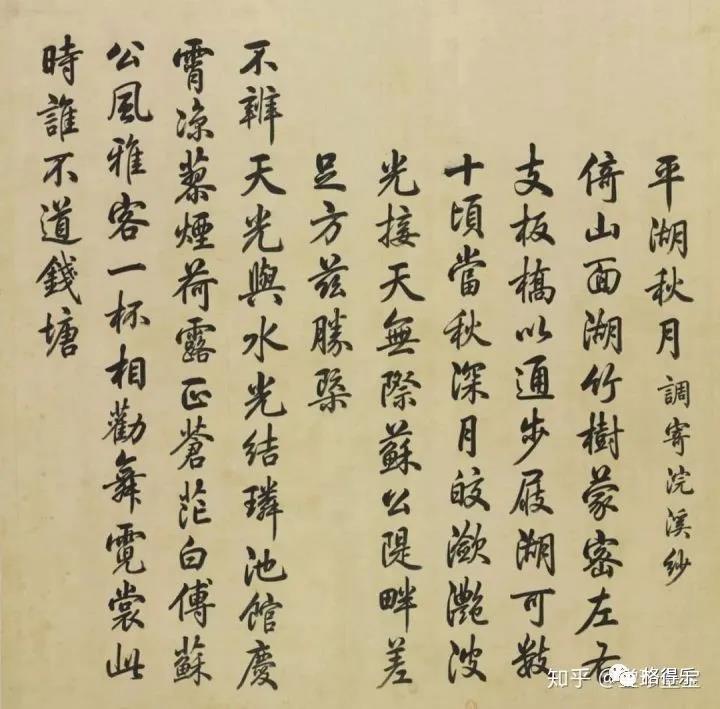 平湖秋月 調寄浣溪紗
倚山面湖竹樹蒙密左右
支板橋以通步屐湖可數
十頃當秋深月皎瀲灔波
光接天無際蘇公隄畔差
足方茲勝槩
不辨天光與水光結璘池館慶
霄凉蓼煙荷露正蒼茫白傅蘇
公風雅客一杯相勸舞霓裳此
時誰不道錢塘
知乎
格得乐